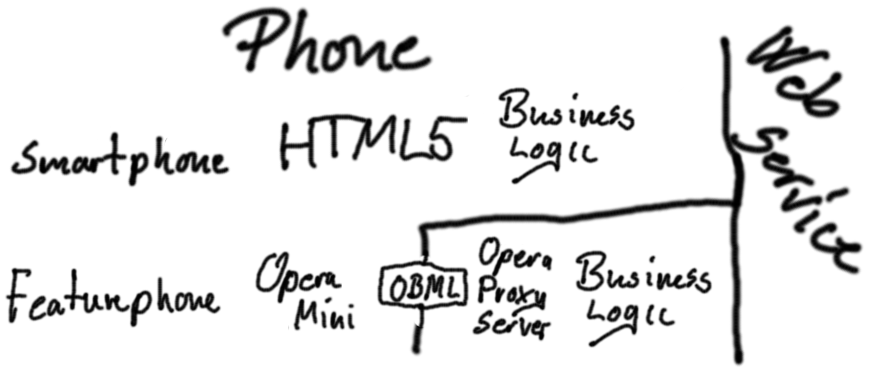 Phone
Web
Service
Smartphone HTML5 Business
Logic
Featurephone Opera
Mini
OBML
Opera
Proxy
Server
Business
Logic